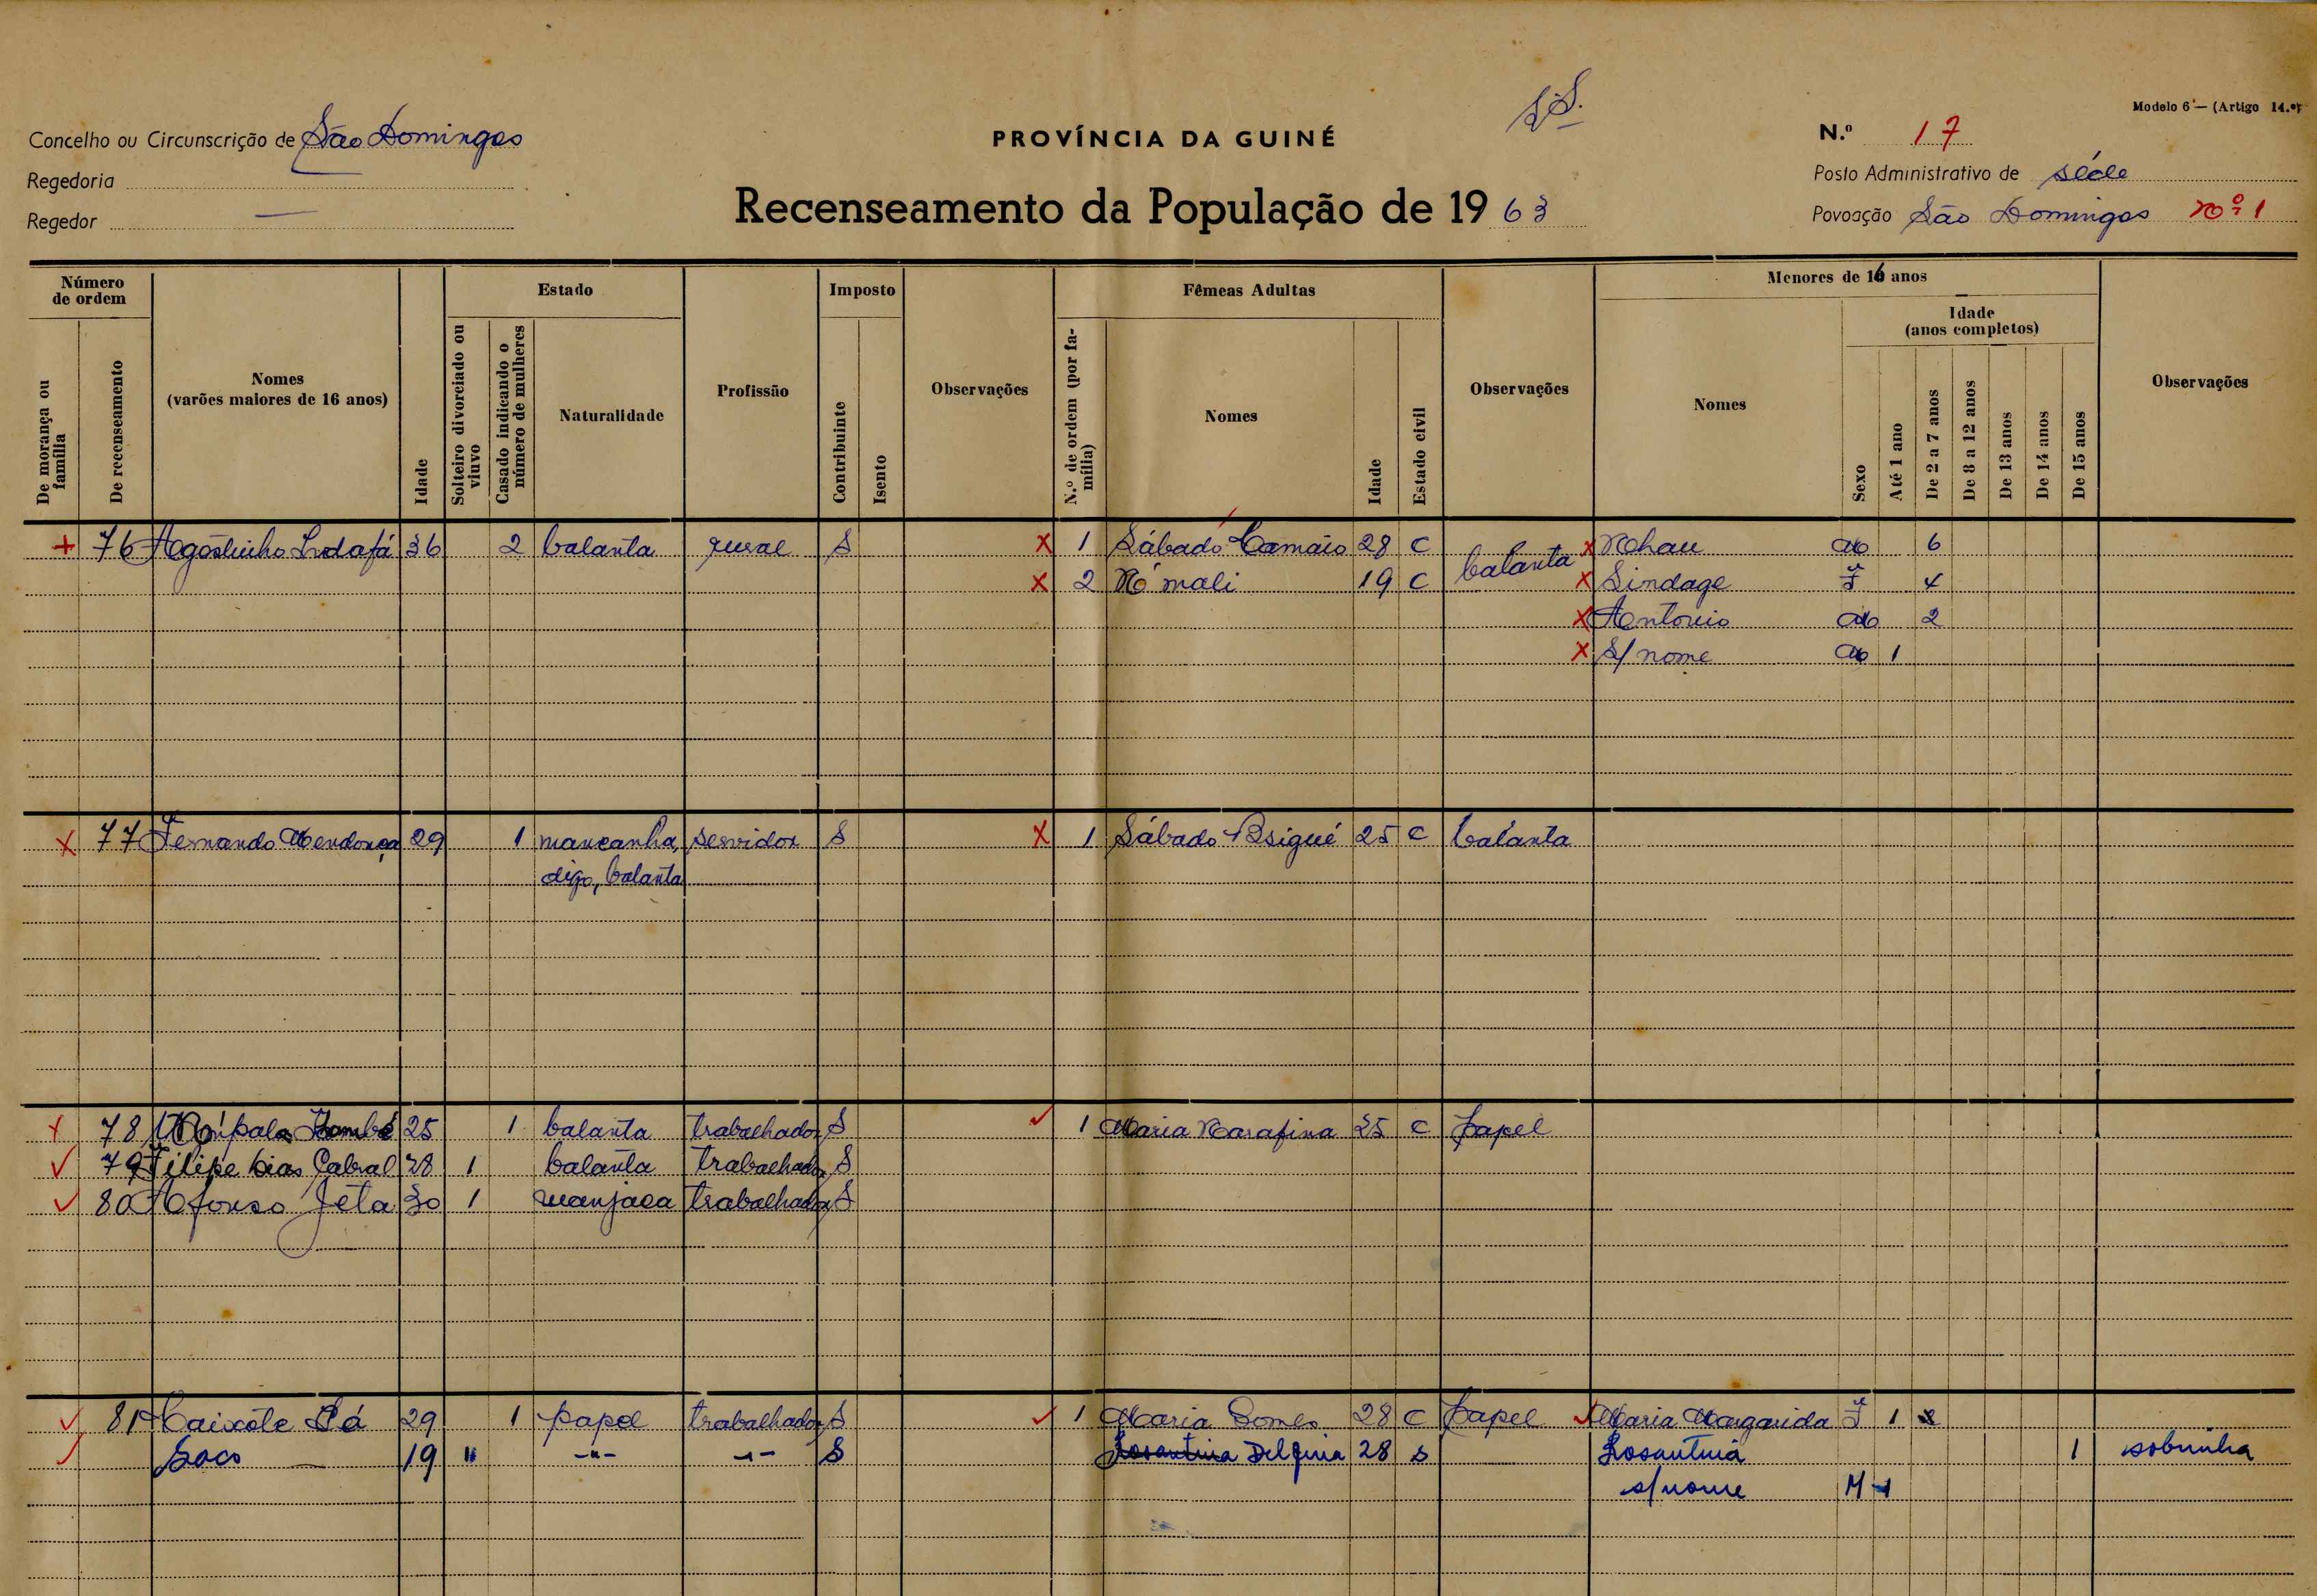 Modelo 6 — (Artigo 14.º)
Concelho ou Circunscrição de São Domingos
PROVÍNCIA DA GUINÉ
N.º 17
Regedoria
Posto Administrativo de séde
Regedor —
Recenseamento da População de 1963
Povoação São Domingos nº 1
Número de ordem
De morança ou família
De recenseamento
Nomes
(varões maiores de 16 anos)
Idade
Estado
Solteiro divorciado ou viuvo
Casado indicando o número de mulheres
Naturalidade
Profissão
Imposto
Contribuinte
Isento
Observações
Fêmeas Adultas
N.º de ordem (por família)
Nomes
Idade
Estado civil
Observações
Menores de 16 anos
Nomes
Sexo
Idade
(anos completos)
Até 1 ano
De 2 a 7 anos
De 8 a 12 anos
De 13 anos
De 14 anos
De 15 anos
Observações
76 Agostinho Indafá 36 2 balanta rural S 1 Sábado Camaio 28 C balanta Nhau M 6
2 N'mali 19 C Sindage F 4
Antonio M 2
S/nome M 1
77 Fernando Mendonça 29 1 mancanha, servidor S 1 Sábado 25 C balanta
digo, balanta
78 25 1 balanta trabalhador S 1 Maria Narafina C papel
79 Filipe Dias Cabral 28 1 balanta trabalhador S
80 Afonso Jeta 30 1 manjaca trabalhador S
81 Caixote Cá 29 1 papel trabalhador S 1 Maria Gomes 28 C papel Maria Margarida F 1
Soco — 19 " -"- -"- S Delfina 28 S Rosantina 1 sobrinha
s/nome M 1